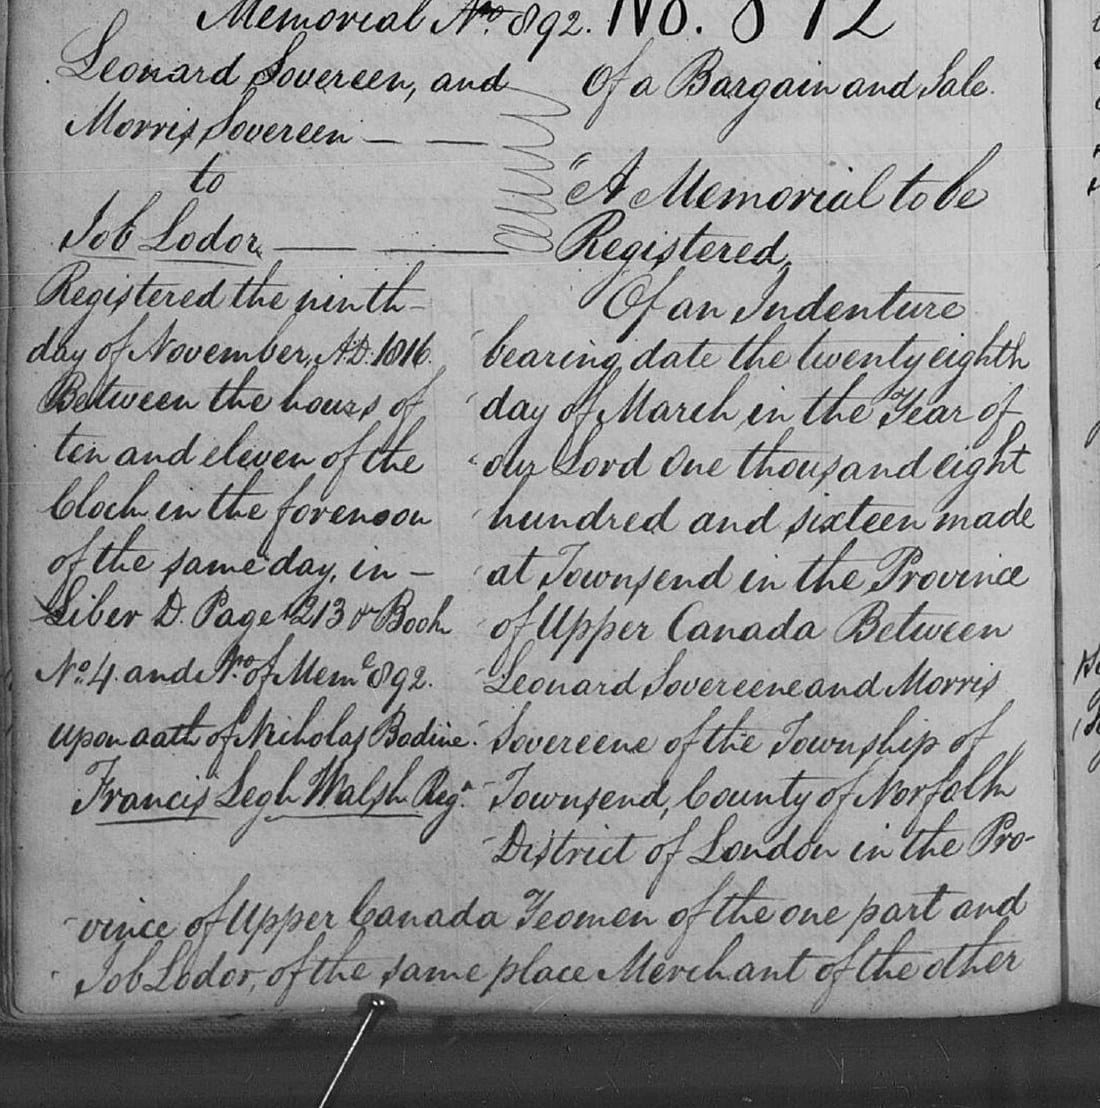 Memorial No. 892. No. 892
Leonard Sovereen, and
Morris Sovereen
to
Job Lodor
Registered the ninth
day of November, A.D. 1816.
Between the hours of
ten and eleven of the
Clock in the forenoon
of the same day, in
Liber D. Page 213 or Book
No. 4 and No. of Meml 892.
upon oath of Nicholas Bodine.
Francis Legh Walsh Regr.
Of a Bargain and Sale.
"A Memorial to be
Registered,
Of an Indenture
bearing date the twenty eighth
day of March in the Year of
our Lord One thousand eight
hundred and sixteen made
at Townsend in the Province
of Upper Canada Between
Leonard Sovereene and Morris
Sovereene of the Township of
Townsend, County of Norfolk
District of London in the Pro-
vince of Upper Canada Yeomen of the one part and
Job Lodor, of the same place Merchant of the other